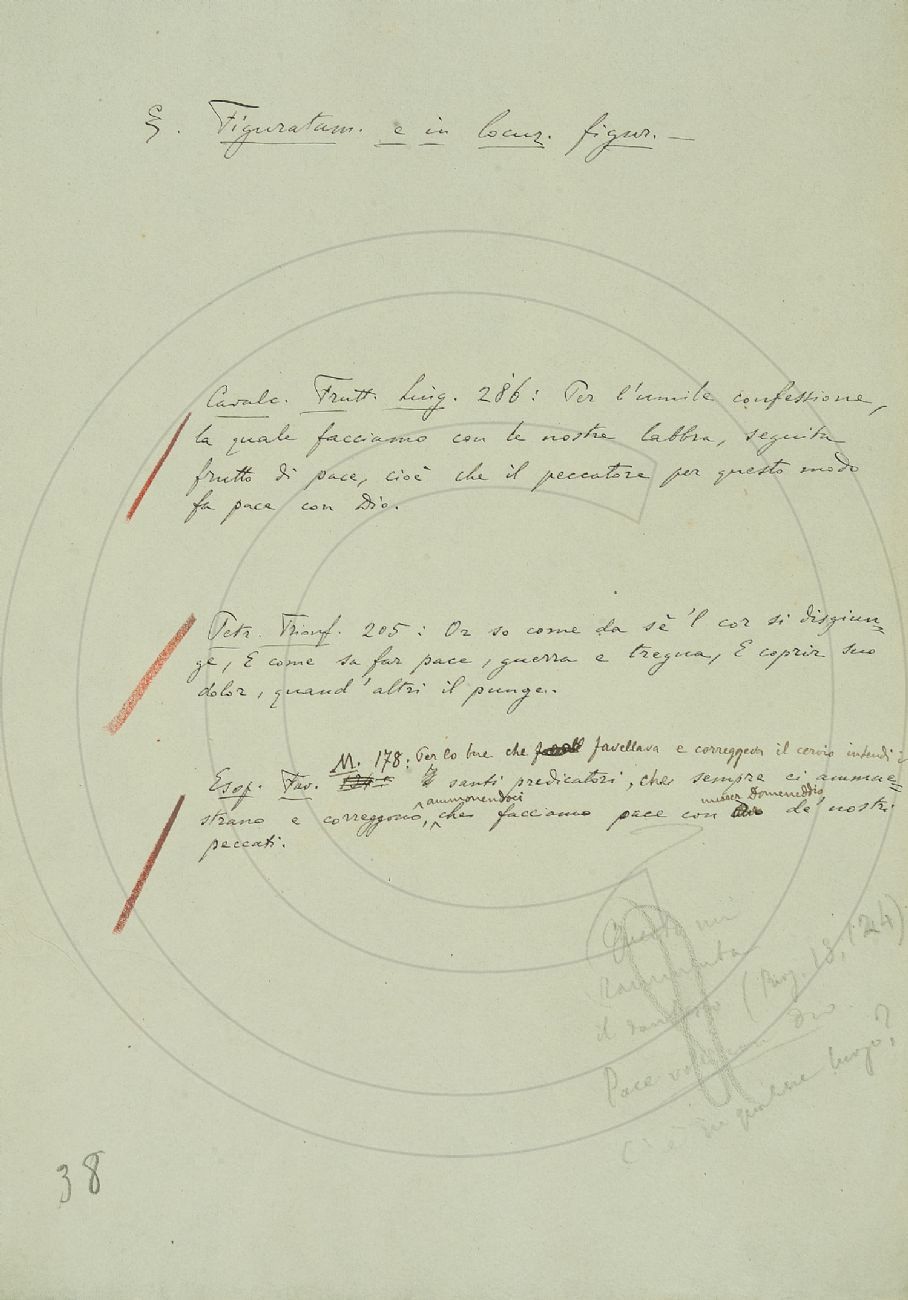 §. Figuratam. e in locuz. figur. —
Cavalc. Frutt. Ling. 286: Per l'umile confessione,
la quale facciamo con le nostre labbra, seguita
frutto di pace, cioè che il peccatore per questo modo
fa pace con Dio.
Petr. Trionf. 205: Or so come da sè 'l cor si disgiun-
ge, E come sa far pace, guerra e tregua, E coprir suo
dolor, quand'altri il punge.
M. 178: Per lo bue che favellava e correggeva il cervio intendi i
Esop. Fav. santi predicatori, che sempre ci ammae-
ammonendoci messer Domeneddio
strano e correggono, che facciamo pace con de' nostri
peccati.
Questo mi
rammenta
il (Purg. 13, 124)
Pace con Dio
C'è in qualche luogo?
38